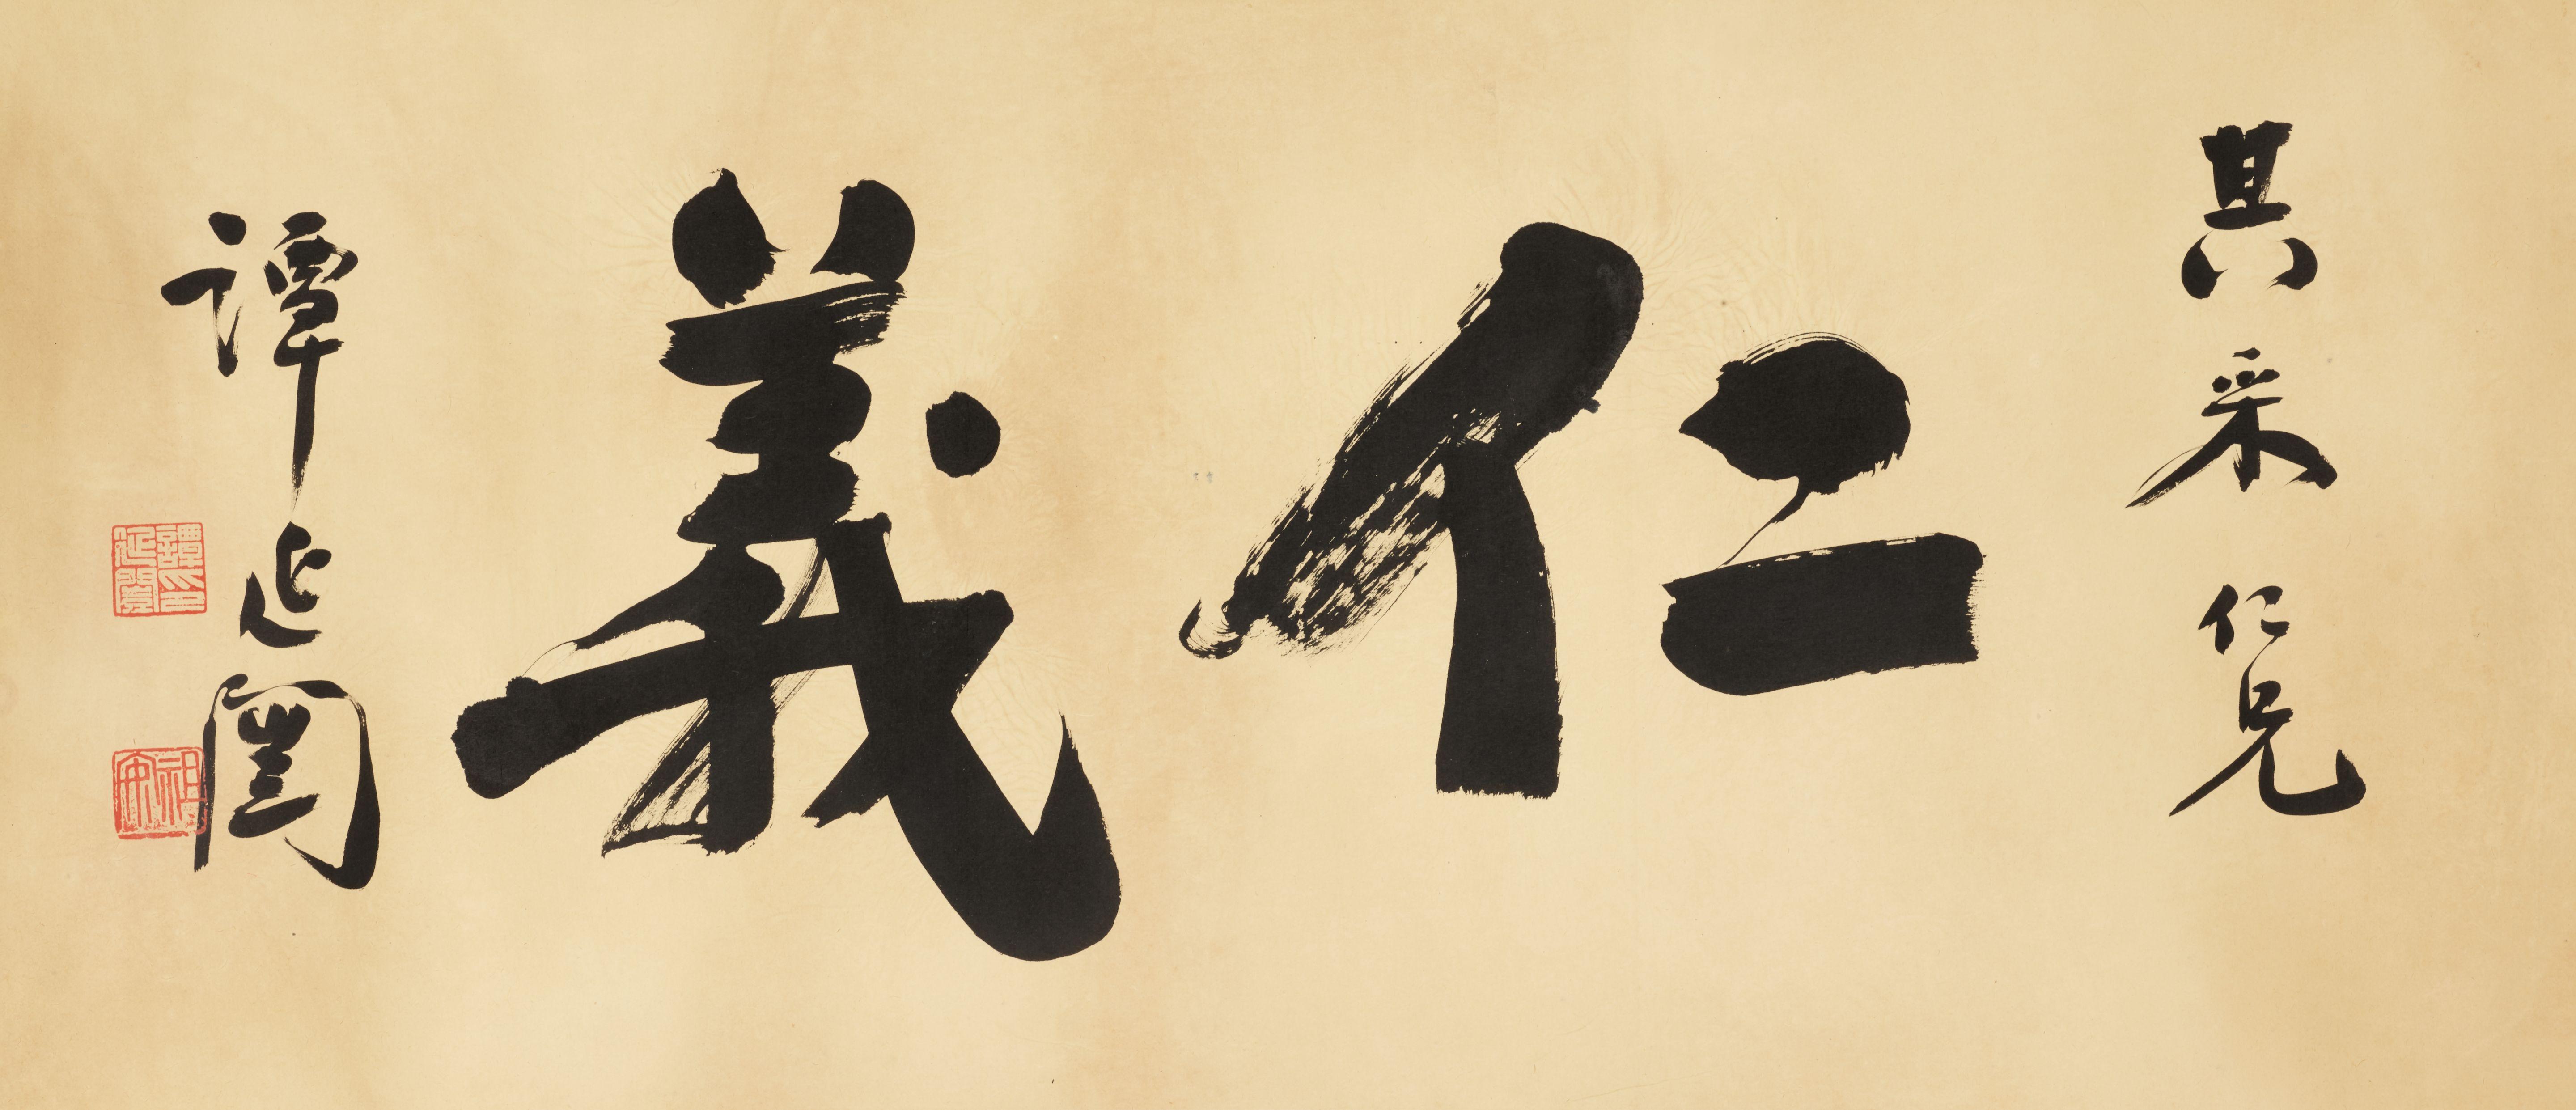 其采仁兄
仁義
譚延闓
譚延闓印
祖安